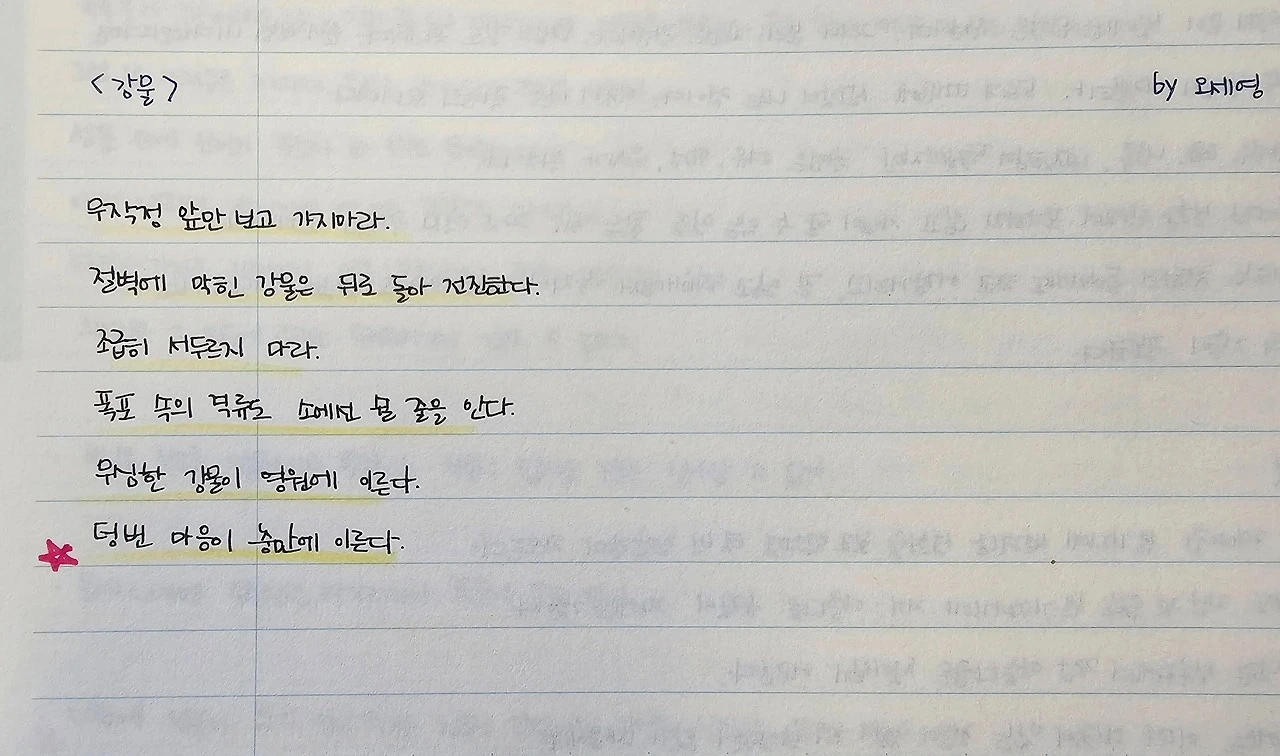 <강물>
by 오세영
무작정 앞만 보고 가지마라.
절벽에 막힌 강물은 뒤로 돌아 전진한다.
조급히 서두르지 마라.
폭포 속의 격류도 소에선 쉴 줄을 안다.
무심한 강물이 영원에 이른다.
텅빈 마음이 충만에 이른다.